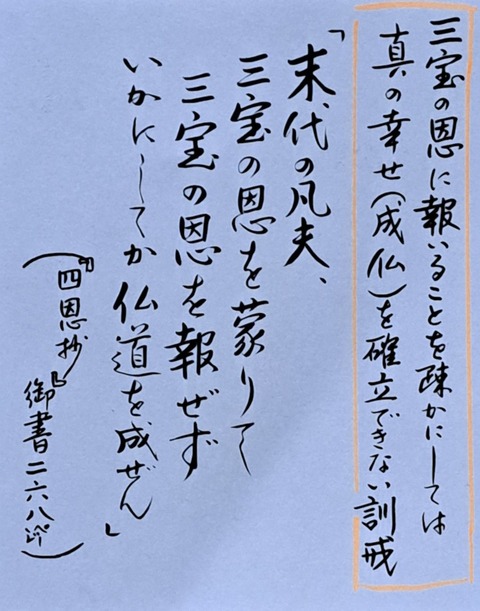 三宝の恩に報いることを疎かにしては
真の幸せ(成仏)を確立できない訓戒
「末代の凡夫、
三宝の恩を蒙りて
三宝の恩を報ぜず
いかにしてか仏道を成ぜん」
(『四恩抄』御書二六八㌻)